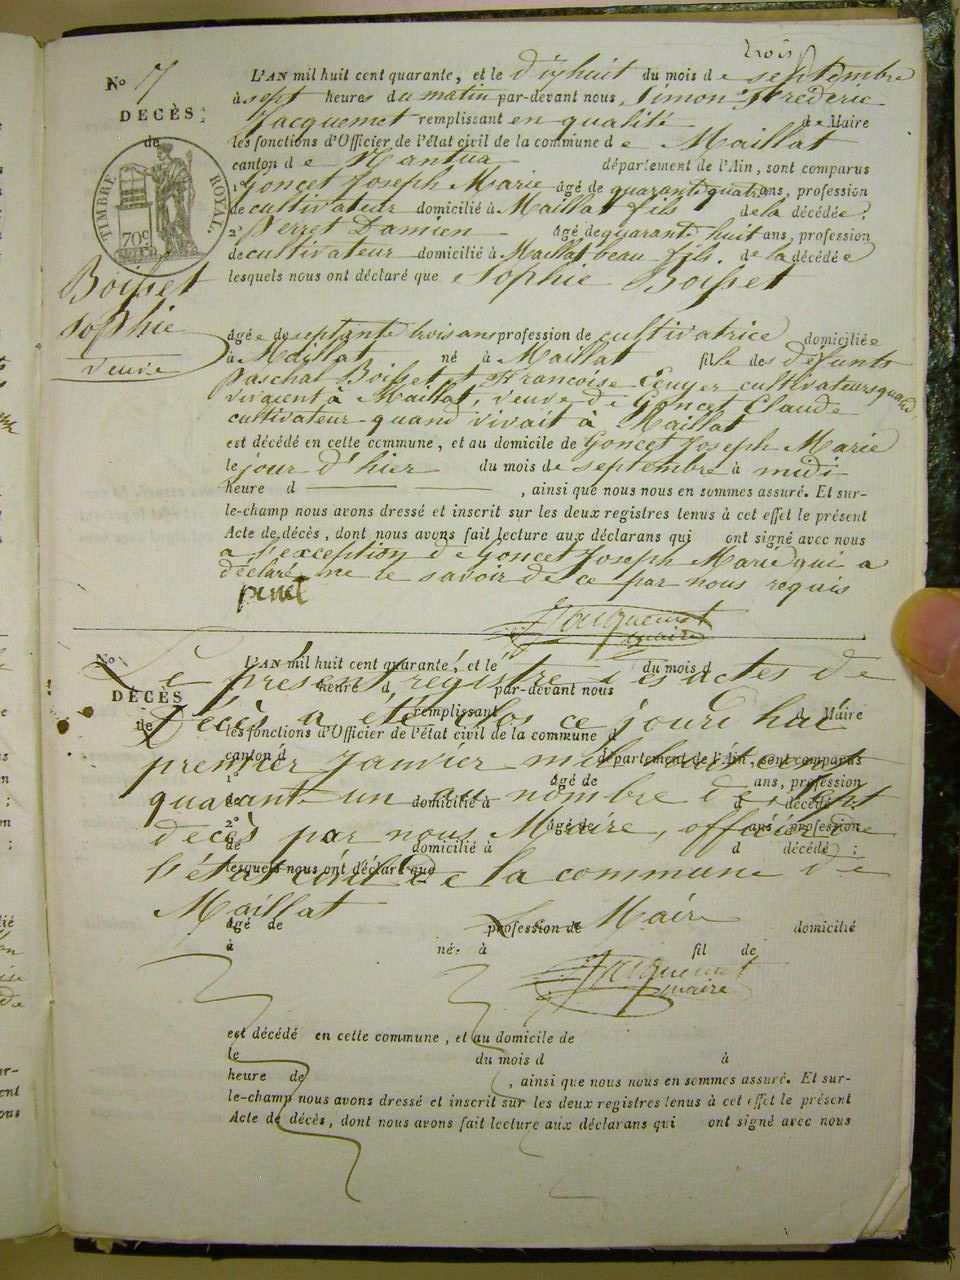 trois
N.º 7
L'AN mil huit cent quarante, et le dixhuit du mois de septembre
à sept heures du matin par-devant nous, Simon Frédéric
DÉCÈS:
Jacquemet remplissant en qualité de Maire
de
les fonctions d'Officier de l'état civil de la commune de Maillat
canton de Nantua département de l'Ain, sont comparus
1º Goncet Joseph Marie âgé de quarante quatre ans, profession
de cultivateur domicilié à Maillat fils de la décédée;
2º Perret Damien âgé de quarante huit ans, profession
de cultivateur domicilié à Maillat beau fils. de la décédée
lesquels nous ont déclaré que Sophie Boisset
TIMBRE ROYAL.
70 c
Boisset
Sophie
veuve
âgée de septante trois ans profession de cultivatrice domiciliée
à Maillat né à Maillat fille des défunts
Paschal Boisset et Francoise Ecuyer cultivateurs quand
vivaient à Maillat, veuve de Goncet Claude
cultivateur quand vivait à Maillat
est décédé en cette commune, et au domicile de Goncet Joseph Marie
le jour d'hier du mois de septembre à midi
heure d , ainsi que nous nous en sommes assuré. Et sur-
le-champ nous avons dressé et inscrit sur les deux registres tenus à cet effet le présent
Acte de décès, dont nous avons fait lecture aux déclarans qui ont signé avec nous
a l'exception de Goncet Joseph Marie qui a
déclaré ne le savoir de ce par nous requis
Jacquemet
maire
N.º
L'AN mil huit cent quarante, et le du mois d
Le présent registre des actes de
heure d par-devant nous
DÉCÈS
remplissant d Maire
de
Décès a été clos ce jourd'hui
les fonctions d'Officier de l'état civil de la commune d
canton d département de l'Ain, sont comparus
premier Janvier mil huit cent
1º âgé de ans, profession
quarante un au nombre de sept
de domicilié à d décédé
2º âgé de ans, profession
décès par nous Maire, officier de
de domicilié à d décédé;
lesquels nous ont déclaré que
l'état civil de la commune de
Maillat
âgé de profession de domicilié
Maire
à né à fil de
Jacquemet
maire
est décédé en cette commune, et au domicile de
le du mois d à
heure de , ainsi que nous nous en sommes assuré. Et sur-
le-champ nous avons dressé et inscrit sur les deux registres tenus à cet effet le présent
Acte de décès, dont nous avons fait lecture aux déclarans qui ont signé avec nous